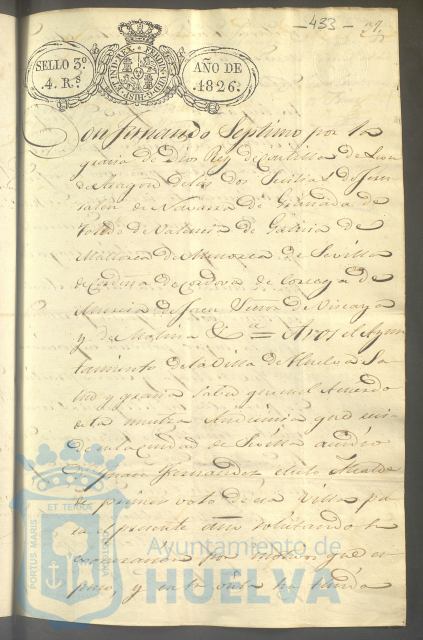 — 433 —
SELLO 3º
.4. Rˢ
AÑO DE
.1826.
Don Fernando Septimo por la
gracia de Dios Rey de Castilla de Leon
de Aragon de las dos Sicilias de Jeru
salen de Navarra de Granada de
Toledo de Valencia de Galicia de
Mallorca de Menorca de Sevilla
de Cerdeña de Cordova de Corcega de
Murcia de Jaen Señor de Vizcaya
y de Molina &ª = A vos el Ayun
tamiento de la Villa de Huelva Sa
lud y gracia sabed que en el Acuerdo
de la nuestra Audiencia que resi
de en la ciudad de Sevilla acudio
Fernandez electo Alcalde
de primer voto de esa Villa pa
ra el presente año solicitando la
exoneracion por motivos que es
puso, y en la vista
PORTUS MARIS
ET TERRA
CUSTODIA
Ayuntamiento de
HUELVA